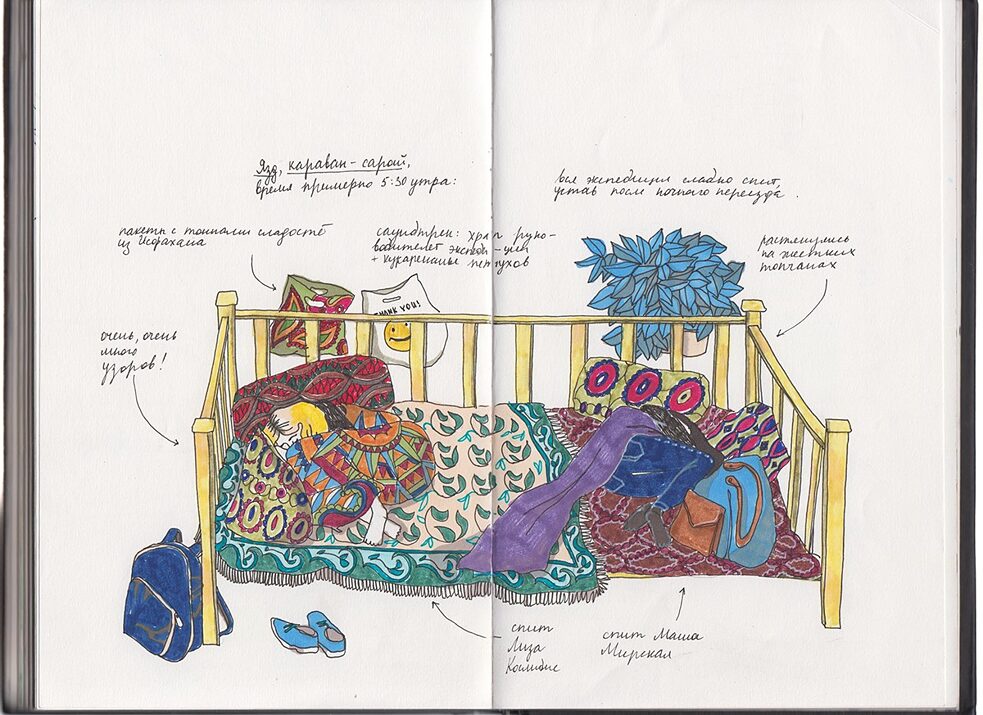 Язд, караван-сарай,
время примерно 5:30 утра:
вся экспедиция сладко спит,
устав после ночного переезда.
пакеты с тоннами сладостей
из Исфахана
саундтрек: храп руко-
водителей экспед-ции
+ кукареканье петухов
растянулись
на жестких
топчанах
очень, очень
много
узоров!
THANK YOU!
спит
Лиза
спит Маша
Мирская